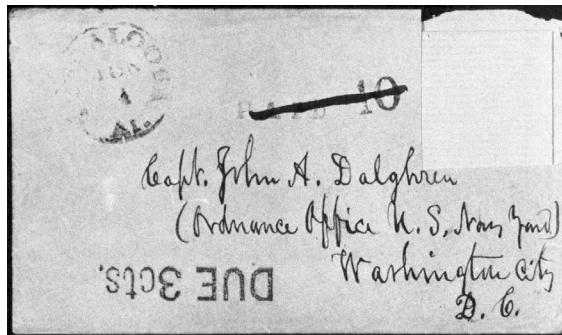 JUN
AL.
PAID 10
Capt. John A. Dalghren
(Ordnance Office U. S. Navy Yard)
Washington City
D. C.
DUE 3cts.